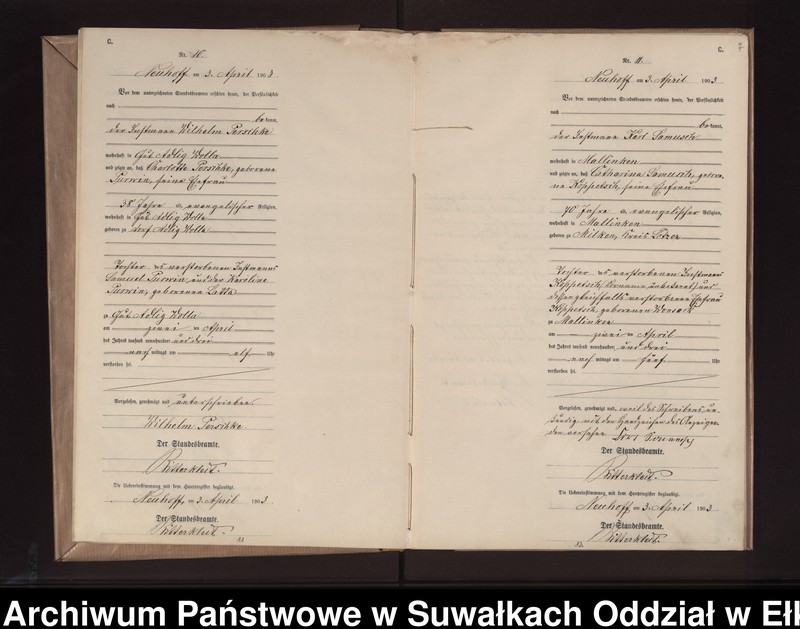 C.
Nr. 10.
Neuhoff am 3. April 1903
Vor dem unterzeichneten Standesbeamten erschien heute, der Persönlichkeit
nach
bekannt,
der Instmann Wilhelm Perschke
wohnhaft in Gut Adlig Wolla
und zeigte an, daß Charlotte Perschke, geborene
Purwin, seine Ehefrau
38 Jahre a. evangelischer Religion,
wohnhaft in Gut Adlig Wolla
geboren zu Dorf Adlig Wolla
Tochter des verstorbenen Instmanns
Samuel Purwin und der Karoline
Purwin, geborenen
zu Gut Adlig Wolla
am zwei ten April
des Jahres tausend neunhundert und drei
nach mittags um elf Uhr
verstorben sei.
Vorgelesen, genehmigt und unterschrieben.
Wilhelm Perschke
Der Standesbeamte.
Ritterkleit.
Die Uebereinstimmung mit dem Hauptregister beglaubigt.
Neuhoff, am 3. April 1903.
Der Standesbeamte.
Ritterkleit.
C.
Nr. 11.
Neuhoff am 3. April 1903
Vor dem unterzeichneten Standesbeamten erschien heute, der Persönlichkeit
nach
bekannt,
der Instmann Karl Samusch
wohnhaft in Mallinken
und zeigte an, daß Catharina Samusch, gebore-
ne Koppetsch, seine Ehefrau
70 Jahre a. evangelischer Religion,
wohnhaft in Mallinken
geboren zu Milken, Kreis Lötzen
Tochter des verstorbenen Instmann
Koppetsch, (Vorname unbekannt) und
dessen gleichfalls verstorbene Ehefrau
Koppetsch, geborenen
zu Mallinken
am zwei ten April
des Jahres tausend neunhundert und drei
nach mittags um fünf Uhr
verstorben sei.
Vorgelesen, genehmigt und, weil des Schreibens un-
kundig mit den Handzeichen des Anzeigen-
den versehen
Der Standesbeamte.
Ritterkleit.
Die Uebereinstimmung mit dem Hauptregister beglaubigt.
Neuhoff, am 3. April 1903
Der Standesbeamte.
Ritterkleit.
Archiwum Państwowe w Suwałkach Oddział w Ełk